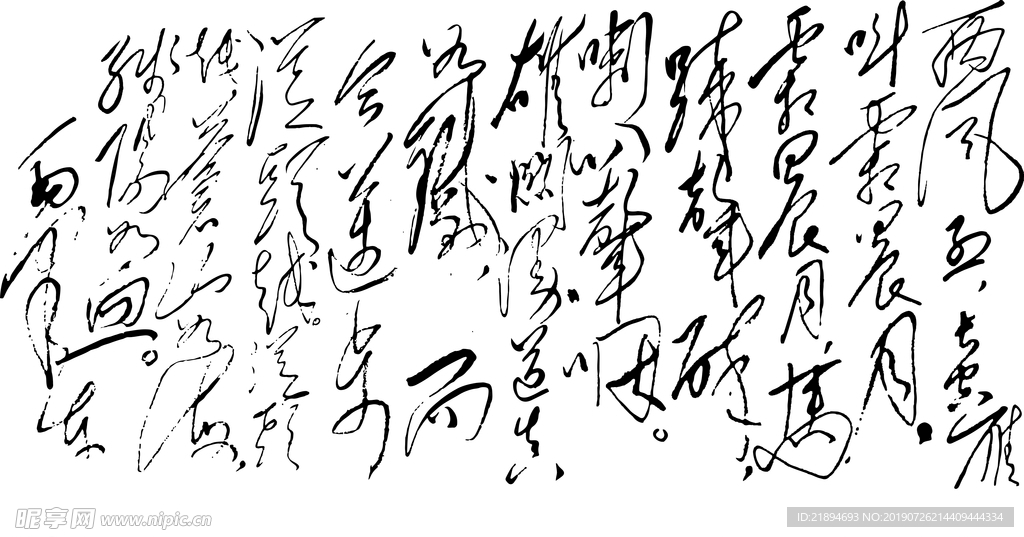 西风烈,长空雁
叫霜晨月。
霜晨月,马
蹄声碎,
喇叭声咽。
雄关漫道真
如铁,而
今迈步
从头越。从头
越,苍山如海,
残阳如血。
昵享网 www.nipic.cn
ID:21894693 NO:20190726214409444334